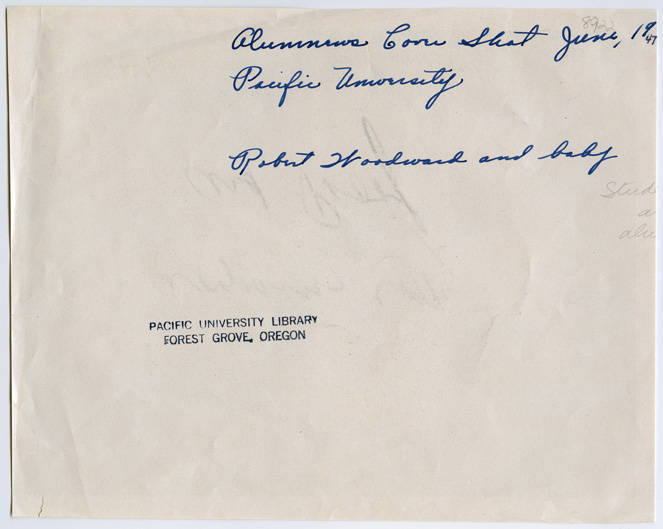 892
Alumnews Cover Shot June, 1947
Pacific University
Robert Woodward and baby
PACIFIC UNIVERSITY LIBRARY
FOREST GROVE, OREGON